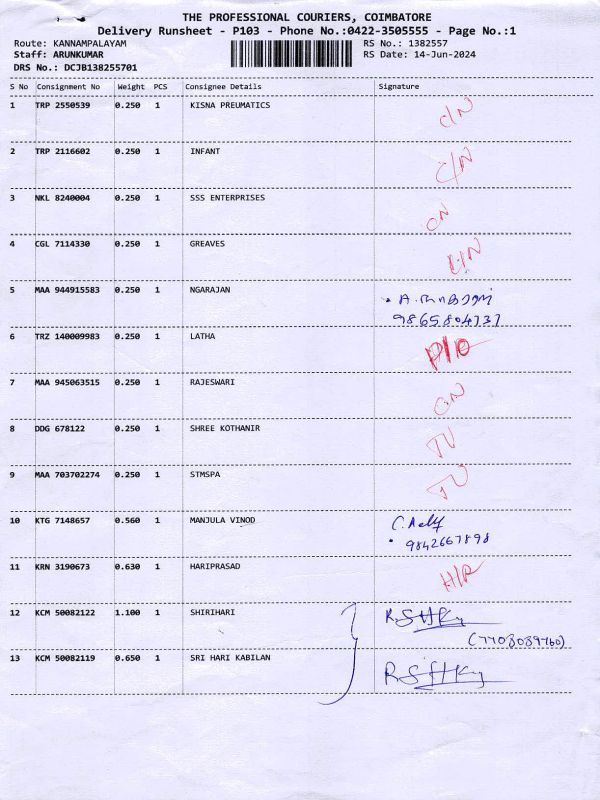 THE PROFESSIONAL COURIERS, COIMBATORE
Delivery Runsheet - P103 - Phone No.:0422-3505555 - Page No.:1
Route: KANNAMPALAYAM RS No.: 1382557
Staff: ARUNKUMAR RS Date: 14-Jun-2024
DRS No.: DCJB138255701
S No Consignment No Weight PCS Consignee Details Signature
1 TRP 2550539 0.250 1 KISNA PREUMATICS C/N
2 TRP 2116602 0.250 1 INFANT C/N
3 NKL 8240004 0.250 1 SSS ENTERPRISES
4 CGL 7114330 0.250 1 GREAVES
5 MAA 944915583 0.250 1 NGARAJAN
9865804737
6 TRZ 140009983 0.250 1 LATHA
7 MAA 945063515 0.250 1 RAJESWARI
8 DDG 678122 0.250 1 SHREE KOTHANIR
9 MAA 703702274 0.250 1 STMSPA
10 KTG 7148657 0.560 1 MANJULA VINOD
9842667898
11 KRN 3190673 0.630 1 HARIPRASAD
12 KCM 50082122 1.100 1 SHIRIHARI
13 KCM 50082119 0.650 1 SRI HARI KABILAN